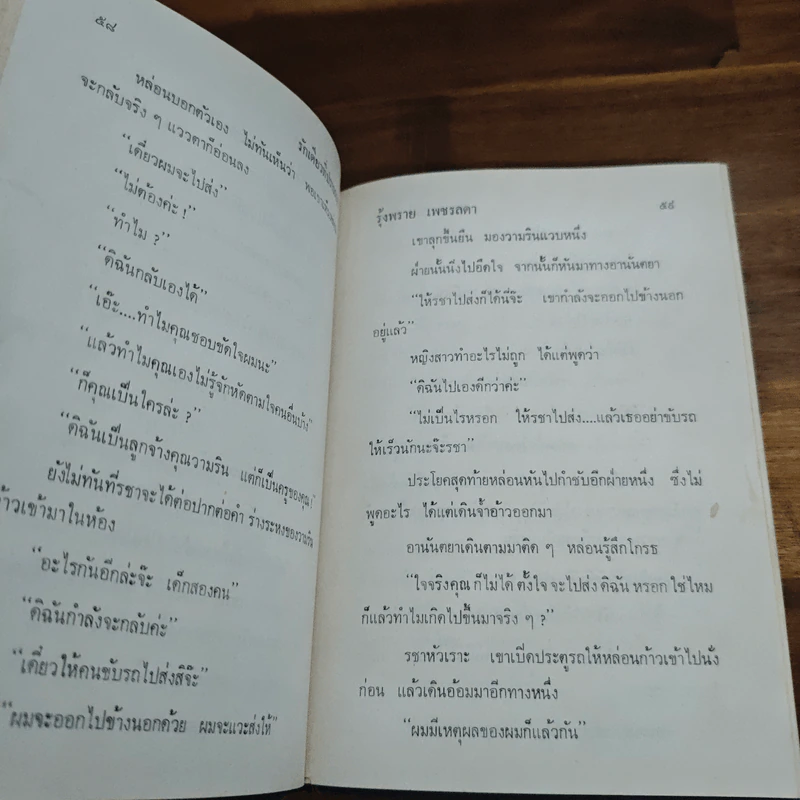 ๕๘
หล่อนบอกตัวเอง ไม่ทันเห็นว่า
จะกลับจริง ๆ แววตาก็อ่อนลง
“เดี๋ยวผมจะไปส่ง”
“ไม่ต้องค่ะ !
“ทำไม ?
“ดิฉันกลับเองได้”
“เอ๊ะ....ทำไมคุณชอบขัดใจผมนะ”
“แล้วทำไมคุณเองไม่รู้จักหัดตามใจคนอื่นบ้าง”
“ก็คุณเป็นใครล่ะ ?
“ดิฉันเป็นลูกจ้างคุณวามริน แต่ก็เป็นครูของคุณ !
ยังไม่ทันที่รชาจะได้ต่อปากต่อคำ ร่างระหงของวามริน
ก้าวเข้ามาในห้อง
“อะไรกันอีกล่ะจ๊ะ เด็กสองคน”
“ดิฉันกำลังจะกลับค่ะ”
“เดี๋ยวให้คนขับรถไปส่งสิจ๊ะ”
“ผมจะออกไปข้างนอกด้วย ผมจะแวะส่งให้”
รุ้งพราย เพชรลดา ๕๙
เขาลุกขึ้นยืน มองวามรินแวบหนึ่ง
ฝ่ายนั้นนิ่งไปอึดใจ จากนั้นก็หันมาทางอานันตยา
“ให้รชาไปส่งก็ได้นี่จ๊ะ เขากำลังจะออกไปข้างนอก
อยู่แล้ว”
หญิงสาวทำอะไรไม่ถูก ได้แต่พูดว่า
“ดิฉันไปเองดีกว่าค่ะ”
“ไม่เป็นไรหรอก ให้รชาไปส่ง....แล้วเธออย่าขับรถ
ให้เร็วนักนะจ๊ะรชา”
ประโยคสุดท้ายหล่อนหันไปกำชับอีกฝ่ายหนึ่ง ซึ่งไม่
พูดอะไร ได้แต่เดินจ้ำอ้าวออกมา
อานันตยาเดินตามมาติด ๆ หล่อนรู้สึกโกรธ
“ใจจริงคุณ ก็ไม่ได้ ตั้งใจ จะไปส่ง ดิฉัน หรอก ใช่ไหม
ก็แล้วทำไมเกิดไปขึ้นมาจริง ๆ ?”
รชาหัวเราะ เขาเปิดประตูรถให้หล่อนก้าวเข้าไปนั่ง
ก่อน แล้วเดินอ้อมมาอีกทางหนึ่ง
“ผมมีเหตุผลของผมก็แล้วกัน”